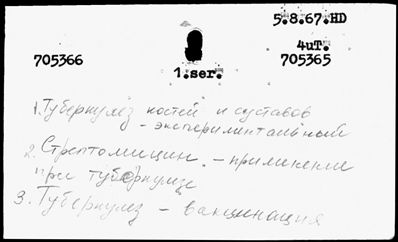 5.8.67.HD
4uT.
705366
705365
1.ser.
1. Туберкулез костей и суставов
- экспериментальный
2. Стрептомицин - применение
при туберкулезе
3. Туберкулез - вакцинация